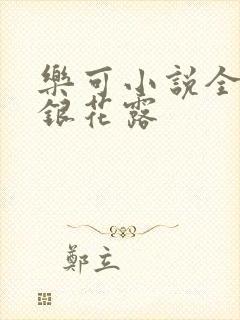 樂可小說全
銀花露
鄭立